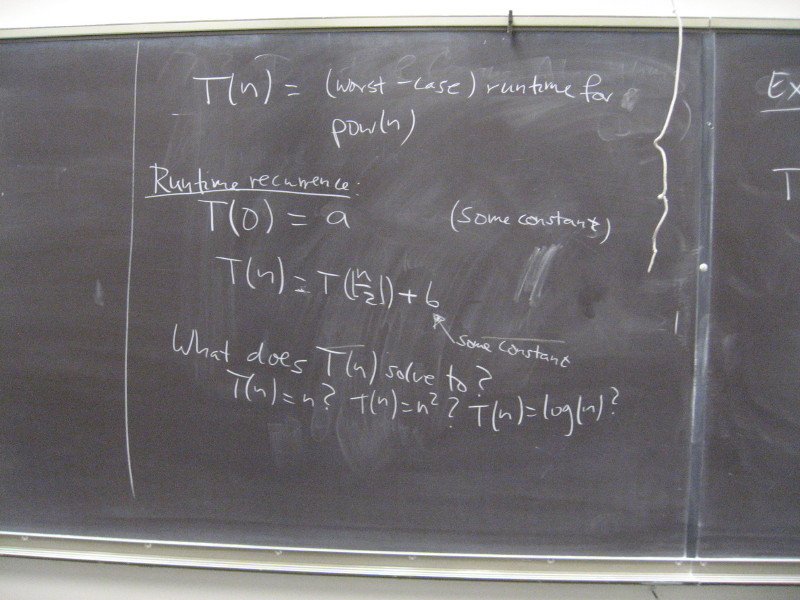 T(n) = (worst-case) runtime for
pow(n)
Runtime recurrence:
T(0) = a (some constant)
T(n) = T(⌊n/2⌋) + b
some constant
What does T(n) solve to?
T(n)=n? T(n)=n²? T(n)=log(n)?
Ex
T